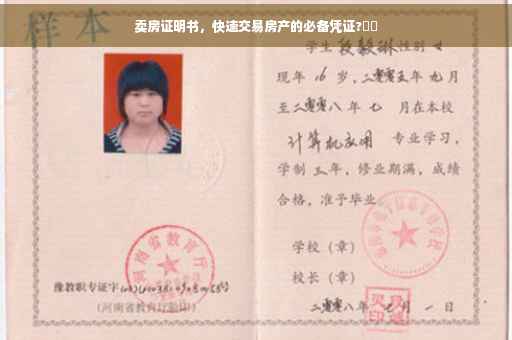 卖房证明书，快速交易房产的必备凭证?
样本
学生段毅琳性别女
现年16岁，二零零五年九月
至二零零八年七月在本校
计算机应用专业学习，
学制三年，修业期满，成绩
合格，准予毕业。
学校（章）
校长（章）
二零零八年七月一日
河南省教育厅
豫教职专证字
（河南省教育厅验印）